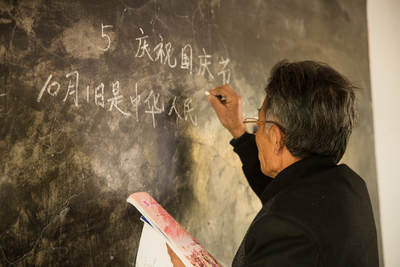 5 庆祝国庆节
10月1日是中华人民